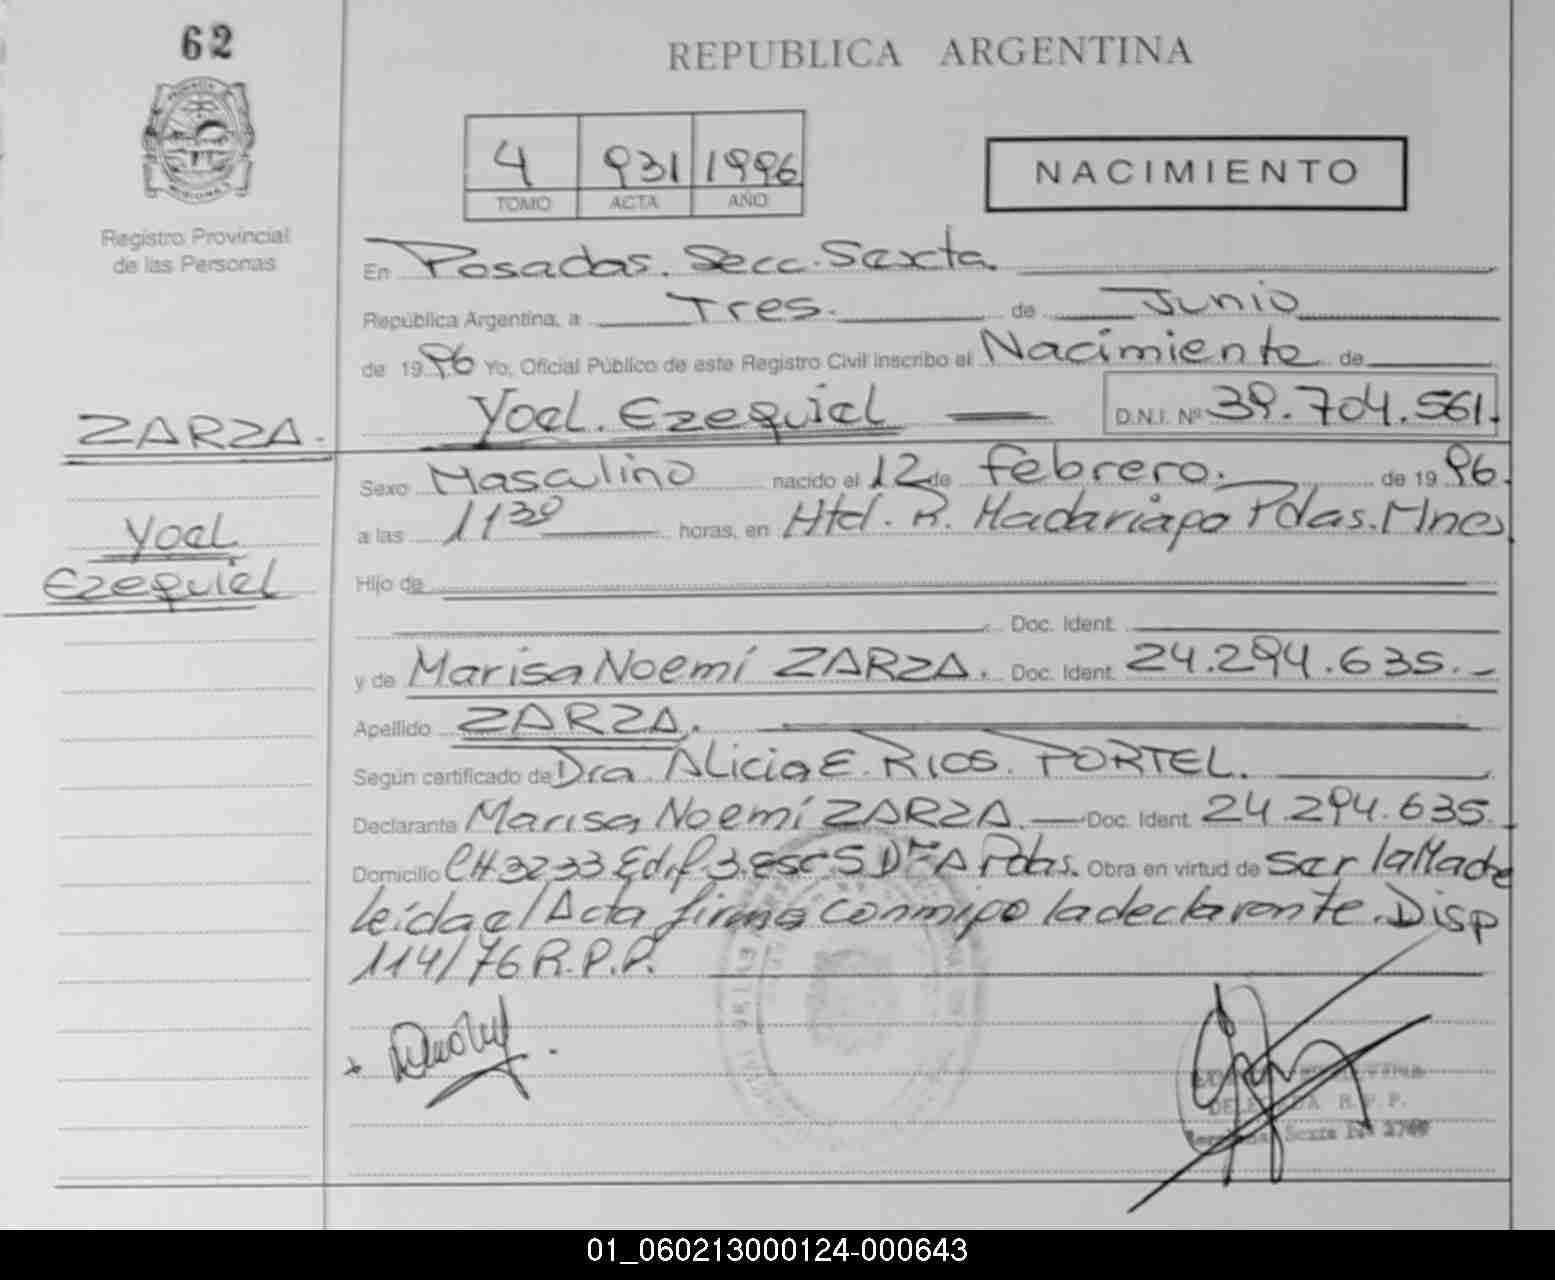 62
REPUBLICA ARGENTINA
4 931 1996
TOMO ACTA AÑO
NACIMIENTO
Registro Provincial
de las Personas
En Posadas. Secc. Sexta.
República Argentina, a Tres. de Junio
de 1996 Yo, Oficial Público de este Registro Civil inscribo el Nacimiento de
ZARZA.
Yoel. Ezequiel D.N.I. Nº 39.704.561.
Sexo Masculino nacido el 12 de febrero. de 1996.
Yoel
Ezequiel
a las 11 30 horas, en Htal. R. Madariaga Pdas. Mnes
Hijo de
Doc. Ident.
y de Marisa Noemí ZARZA. Doc. Ident. 24.294.635.-
Apellido ZARZA.
Según certificado de Dra. Alicia E. RIOS. PORTEL.
Declarante Marisa Noemí ZARZA. Doc. Ident. 24.294.635.
Domicilio CH.32 33 Edif. 3. esc 5 Dto A Pdas. Obra en virtud de ser la Madre
leída el Acta firma conmigo la declarante. Disp
114/76 R.P.P.
R.P.P.
Sexta Nº
01_060213000124-000643